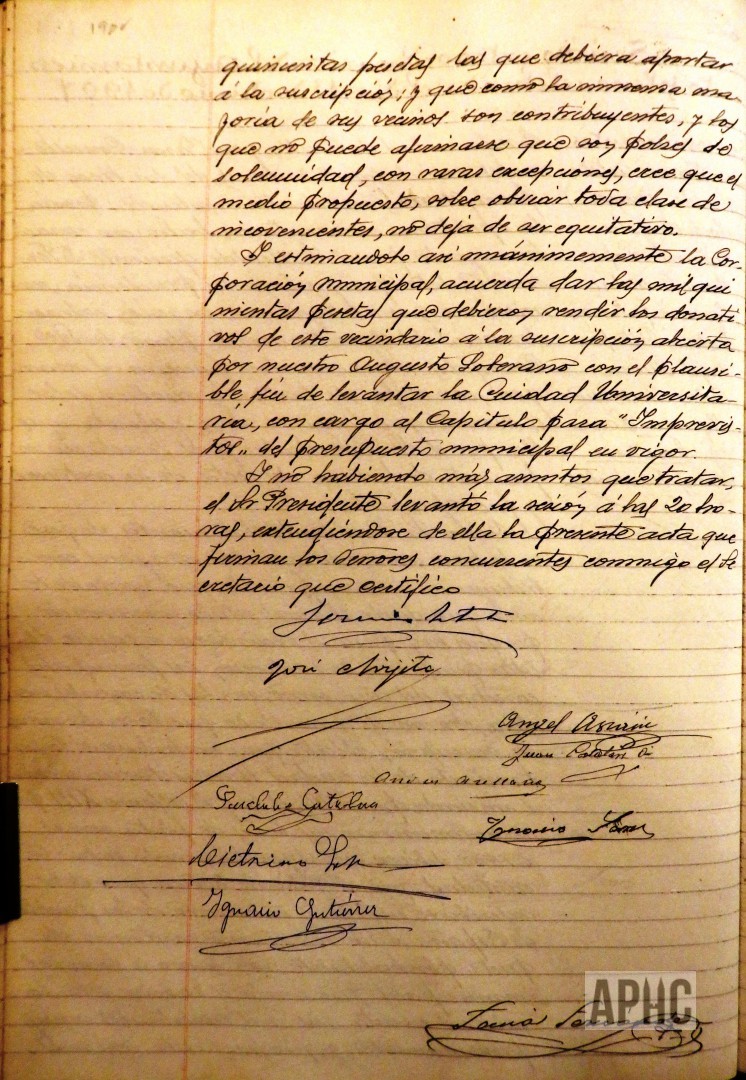 quinientas pesetas las que debiera aportar
á la suscripción; y que como la inmensa ma-
yoria de sus vecinos son contribuyentes, y los
que nó puede afirmarse que son pobres de
solemnidad, con raras excepciónes, cree que el
medio propuesto, sobre obviar toda clase de
incovenientes, nó deja de ser equitativo.
Y estimandolo asi unánimemente la Cor-
poración municipal, acuerda dar las mil qui
nientas pesetas que debieron rendir los donati
vos de este vecindario á la suscripción abierta
por nuestro Augusto Soberano con el plausi-
ble fin de levantar la Cuidad Universita-
ria, con cargo al Capitulo para "Imprevis
tos" del presupuesto municipal en vigor.
Y nó habiendo más asuntos que tratar,
el Sr Presidente levantó la sesión á las 20 ho-
ras, extendiéndose de ella la presente acta que
firman los Señores concurrentes conmigo el Se
cretario que certifico
José
Angel
Juan
Ignacio
Ignacio Gutiérrez
APHC